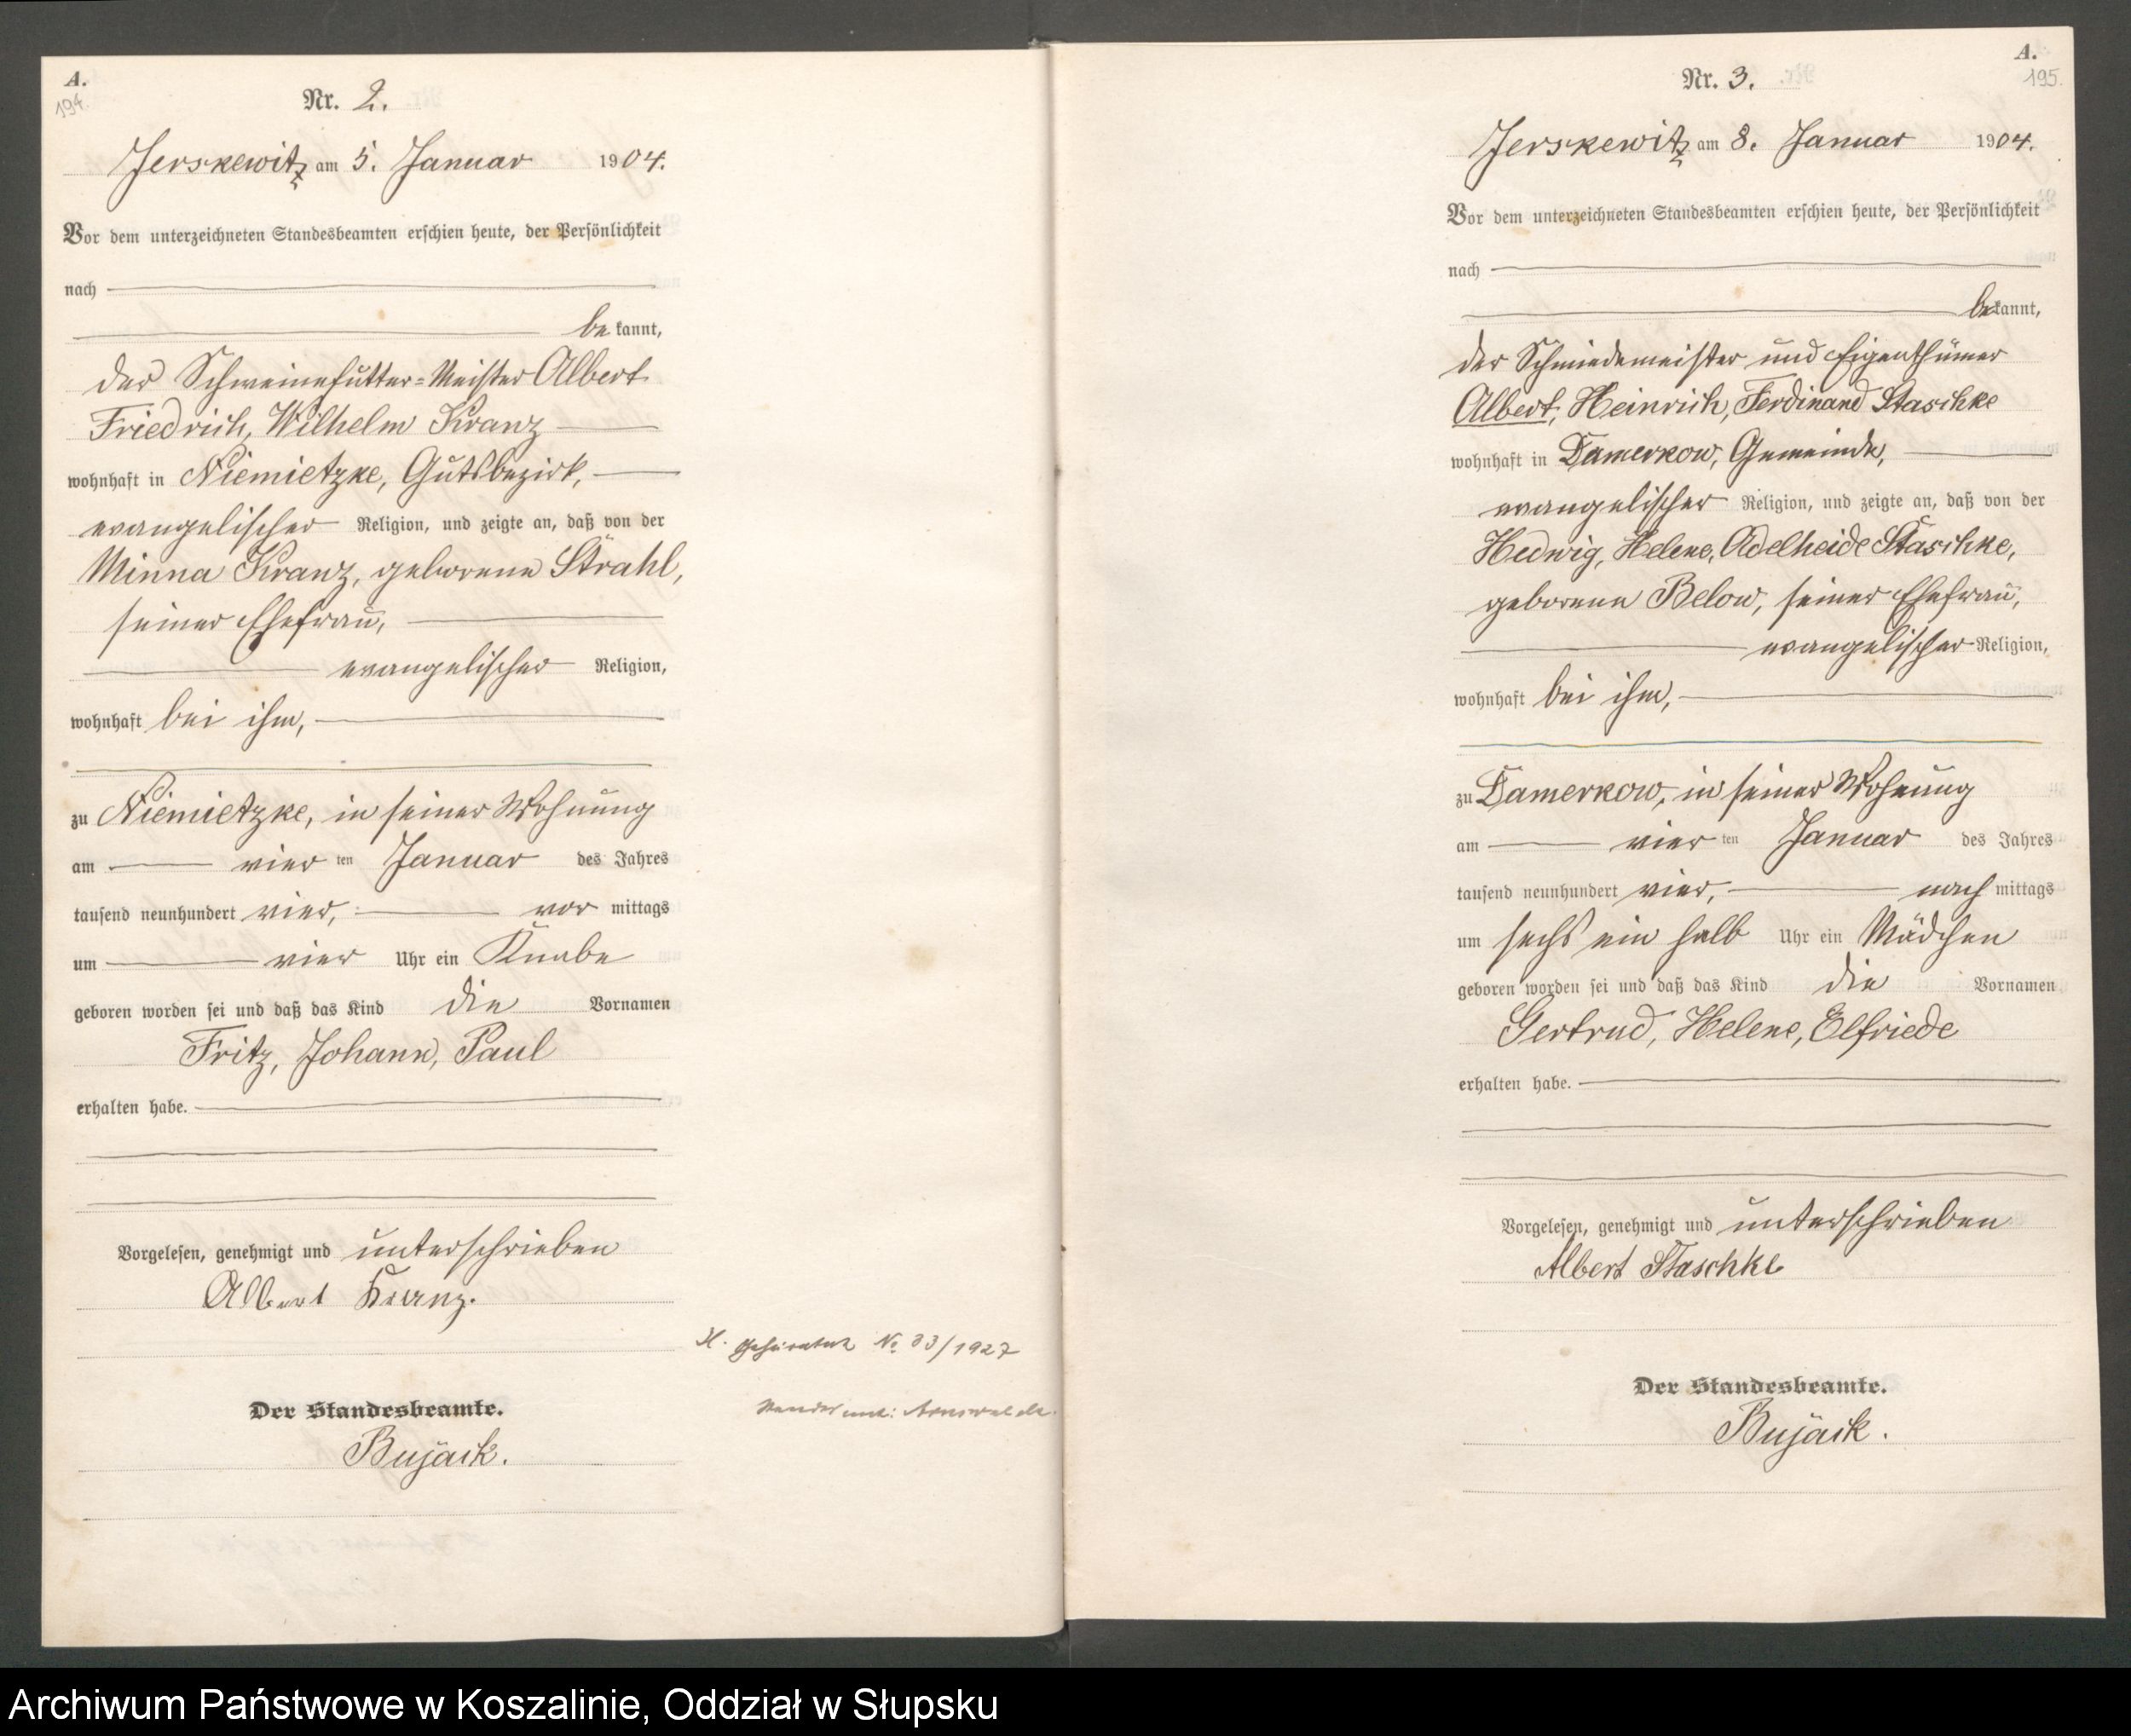 A.
194.
Nr. 2.
Jerskewitz am 5. Januar 1904.
Vor dem unterzeichneten Standesbeamten erschien heute, der Persönlichkeit
nach
be kannt,
der Schweinefütter-Meister Albert
Friedrich, Wilhelm Kranz
wohnhaft in Niemietzke, Gutsbezirk,
evangelischer Religion, und zeigte an, daß von der
Minna Kranz, geborene Strahl,
seiner Ehefrau,
evangelischer Religion,
wohnhaft bei ihm,
zu Niemietzke, in seiner Wohnung
am vier ten Januar des Jahres
tausend neunhundert vier, vor mittags
um vier Uhr ein Knabe
geboren worden sei und daß das Kind die Vornamen
Fritz, Johann, Paul
erhalten habe.
Vorgelesen, genehmigt und unterschrieben
Albert Kranz.
Der Standesbeamte.
Bujack.
H. geheiratet No 33/1927
Standesamt: Arnswalde.
A.
195.
Nr. 3.
Jerskewitz am 8. Januar 1904.
Vor dem unterzeichneten Standesbeamten erschien heute, der Persönlichkeit
nach
bekannt,
der Schmiedemeister und Eigenthümer
Albert, Heinrich, Ferdinand Staschke
wohnhaft in Damerkow, Gemeinde,
evangelischer Religion, und zeigte an, daß von der
Hedwig, Helene, Adelheide Staschke,
geborene Below, seiner Ehefrau,
evangelischer Religion,
wohnhaft bei ihm,
zu Damerkow, in seiner Wohnung
am vier ten Januar des Jahres
tausend neunhundert vier, nach mittags
um sechs ein halb Uhr ein Mädchen
geboren worden sei und daß das Kind die Vornamen
Gertrud, Helene, Elfriede
erhalten habe.
Vorgelesen, genehmigt und unterschrieben
Albert Staschke
Der Standesbeamte.
Bujack.
Archiwum Państwowe w Koszalinie, Oddział w Słupsku